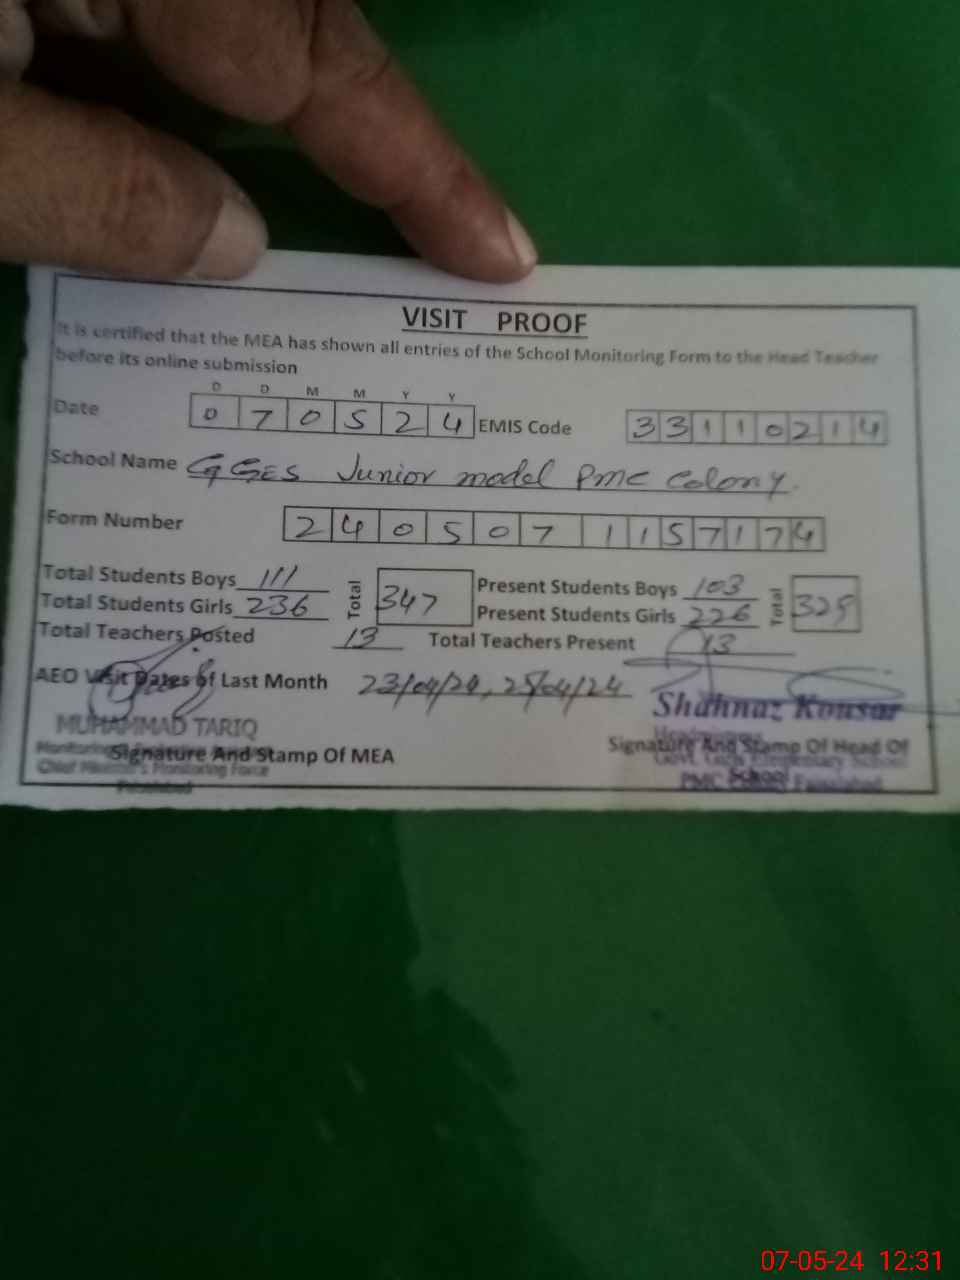 VISIT PROOF
It is certified that the MEA has shown all entries of the School Monitoring Form to the Head Teacher
before its online submission
D D M M Y Y
Date 0 7 0 5 2 4 EMIS Code 3 3 1 1 0 2 1 4
School Name GGES Junior model PMC Colony.
Form Number 2 4 0 5 0 7 1 1 5 7 1 7 4
Total Students Boys 111 Total 347 Present Students Boys 103 Total 329
Total Students Girls 236 Present Students Girls 226
Total Teachers Posted 13 Total Teachers Present 13
AEO Visit Dates of Last Month 23/04/24, 25/04/24
Shahnaz Kousar
MUHAMMAD TARIQ
Signature And Stamp Of MEA Signature And Stamp Of Head Of
School
Govt. Girls Elementary School
Chief Minister's Monitoring Force
PMC Colony Faisalabad
Faisalabad
07-05-24 12:31